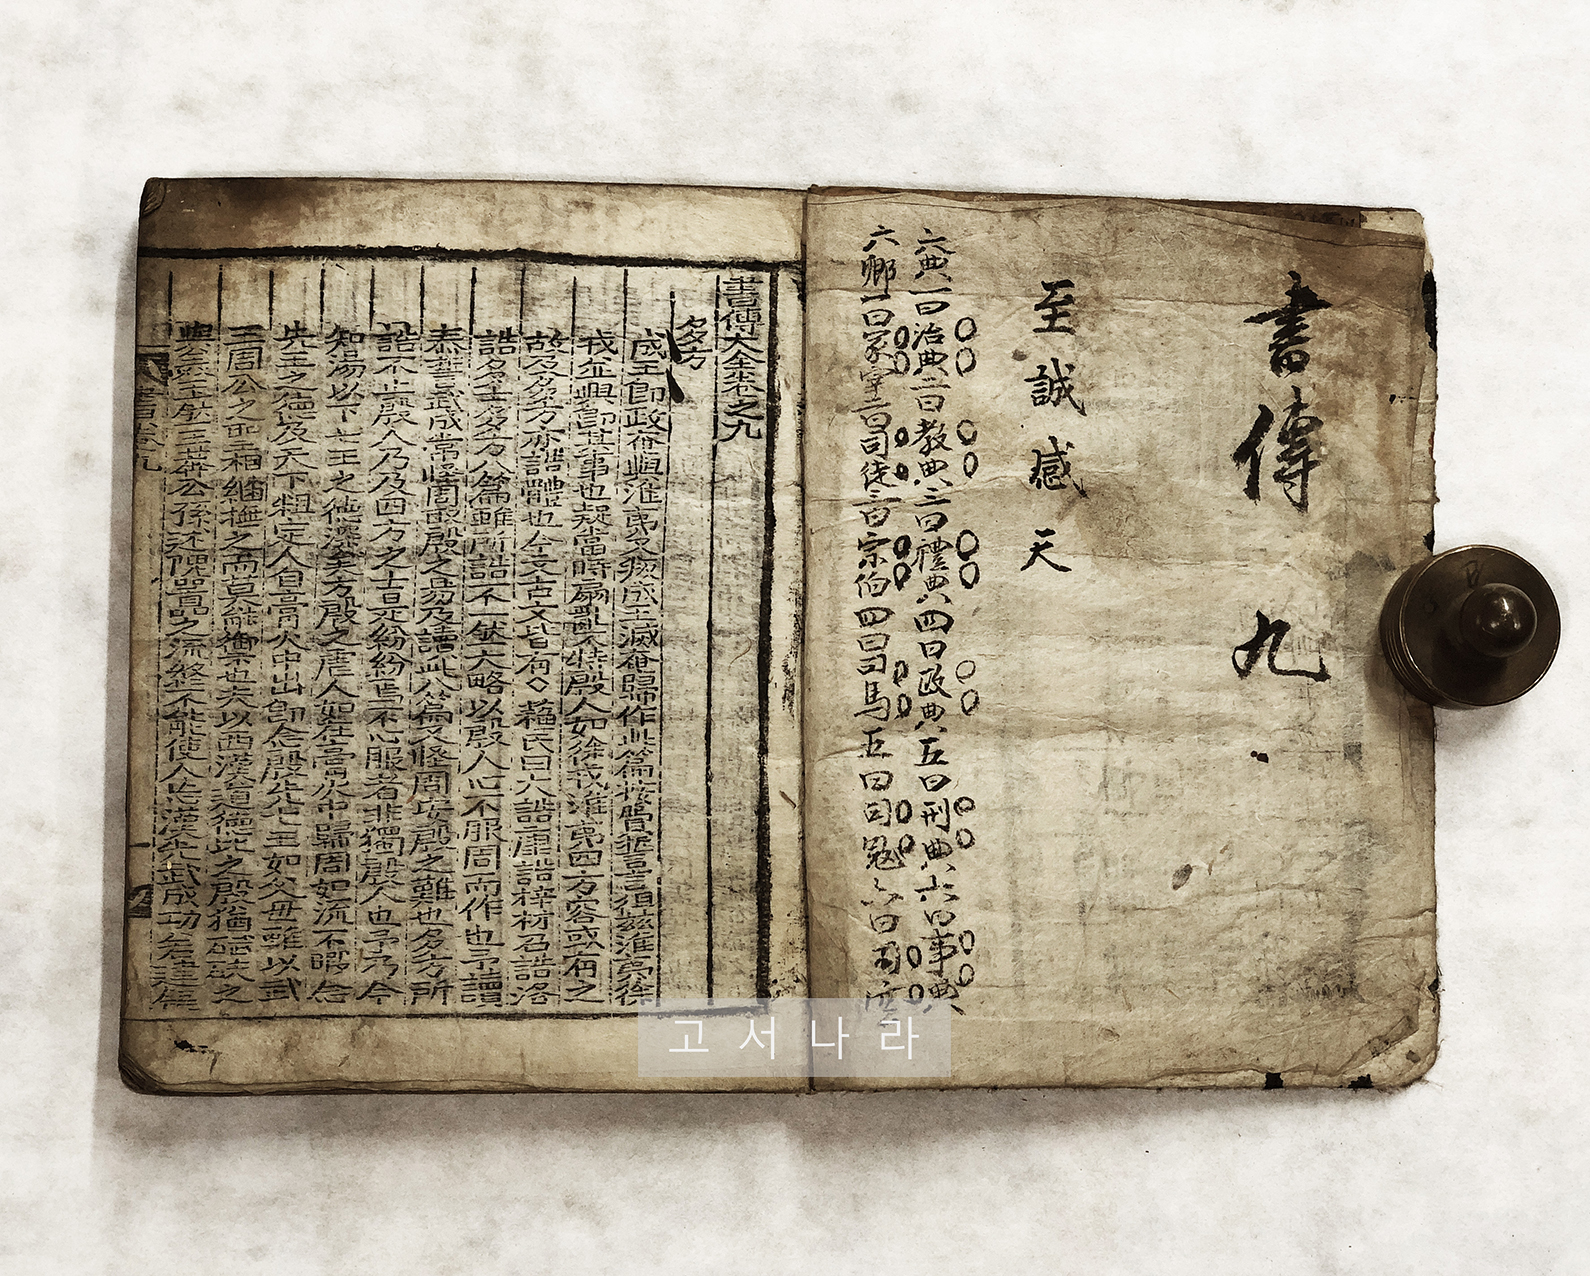 書傳 九
至誠感天
六典一曰治典二曰敎典三曰禮典四曰政典五曰刑典六曰事典
六卿一曰冢宰二曰司徒三曰宗伯四曰司馬五曰司寇六曰司空
書傳大全卷之九
多方
成王卽政奄與淮夷又叛成王滅奄歸作此篇按費誓言徂玆淮夷徐
戎並興卽其事也疑當時扇亂不特殷人如徐戎淮夷四方容或有之
故及多方亦誥體也今文古文皆有◇蘇氏曰大誥康誥梓材召誥洛
誥多士多方八篇雖所誥不一然大略以殷人心不服周而作也予讀
泰誓武成常怪周取殷之易及讀此八篇又怪周安殷之難也多方所
誥不止殷人乃及四方之士是紛紛焉不心服者非獨殷人也予乃今
知湯以下七王之德深矣方殷之虐人如在膏火中歸周如流不暇念
先王之德及天下粗定人自膏火中出卽念殷先七王如父母雖以武
王周公之聖相繼撫之而莫能禦也夫以西漢道德比之殷猶碔砆之
與美玉然王莽公孫述隗囂之流終不能使人忘漢光武成功若建瓴
고서나라